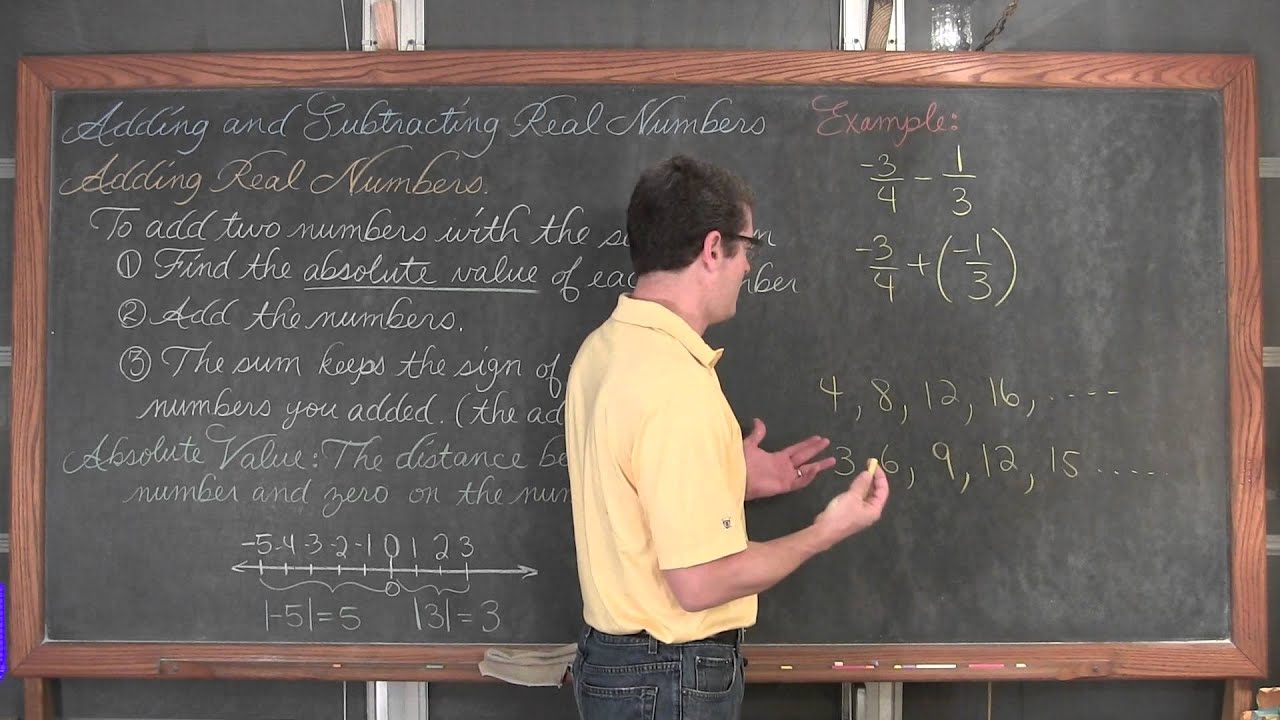 Adding and Subtracting Real Numbers
Adding Real Numbers.
To add two numbers with the
① Find the absolute value of
② Add the numbers.
③ The sum keeps the sign of
numbers you added. (the
Absolute Value: The distance
number and zero on the
-5 -4 -3 -2 -1 0 1 2 3
|-5|=5 |3|=3
Example:
-3/4 - 1/3
-3/4 + (-1/3)
4, 8, 12, 16, ....
3, 6, 9, 12, 15 .....